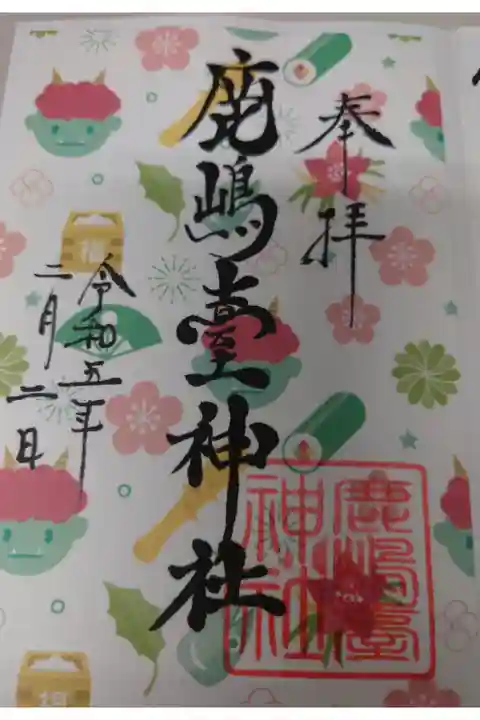 奉拝
鹿嶋臺神社
令和五年
二月二日
鹿嶋臺
神社
福
福